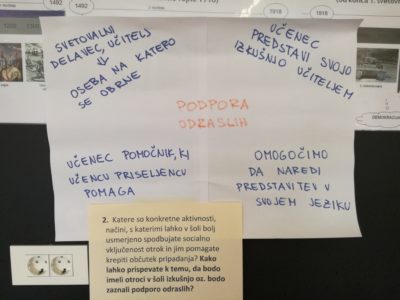 1492
1492
1918
1918
SVETOVALNI
DELAVEC, UČITELJ
⇓
OSEBA NA KATERO
SE OBRNE
UČENEC
PREDSTAVI SVOJO
IZKUŠNJO UČITELJEM
PODPORA
ODRASLIH
UČENEC POMOČNIK, KI
UČENCU PRISELJENCU
POMAGA
OMOGOČIMO
DA NAREDI
PREDSTAVITEV V
SVOJEM JEZIKU
DEMOKRACIJA
2. Katere so konkretne aktivnosti,
načini, s katerimi lahko v šoli bolj
usmerjeno spodbujate socialno
vključenost otrok in jim pomagate
krepiti občutek pripadanja? Kako
lahko prispevate k temu, da bodo
imeli otroci v šoli izkušnjo oz. bodo
zaznali podporo odraslih?